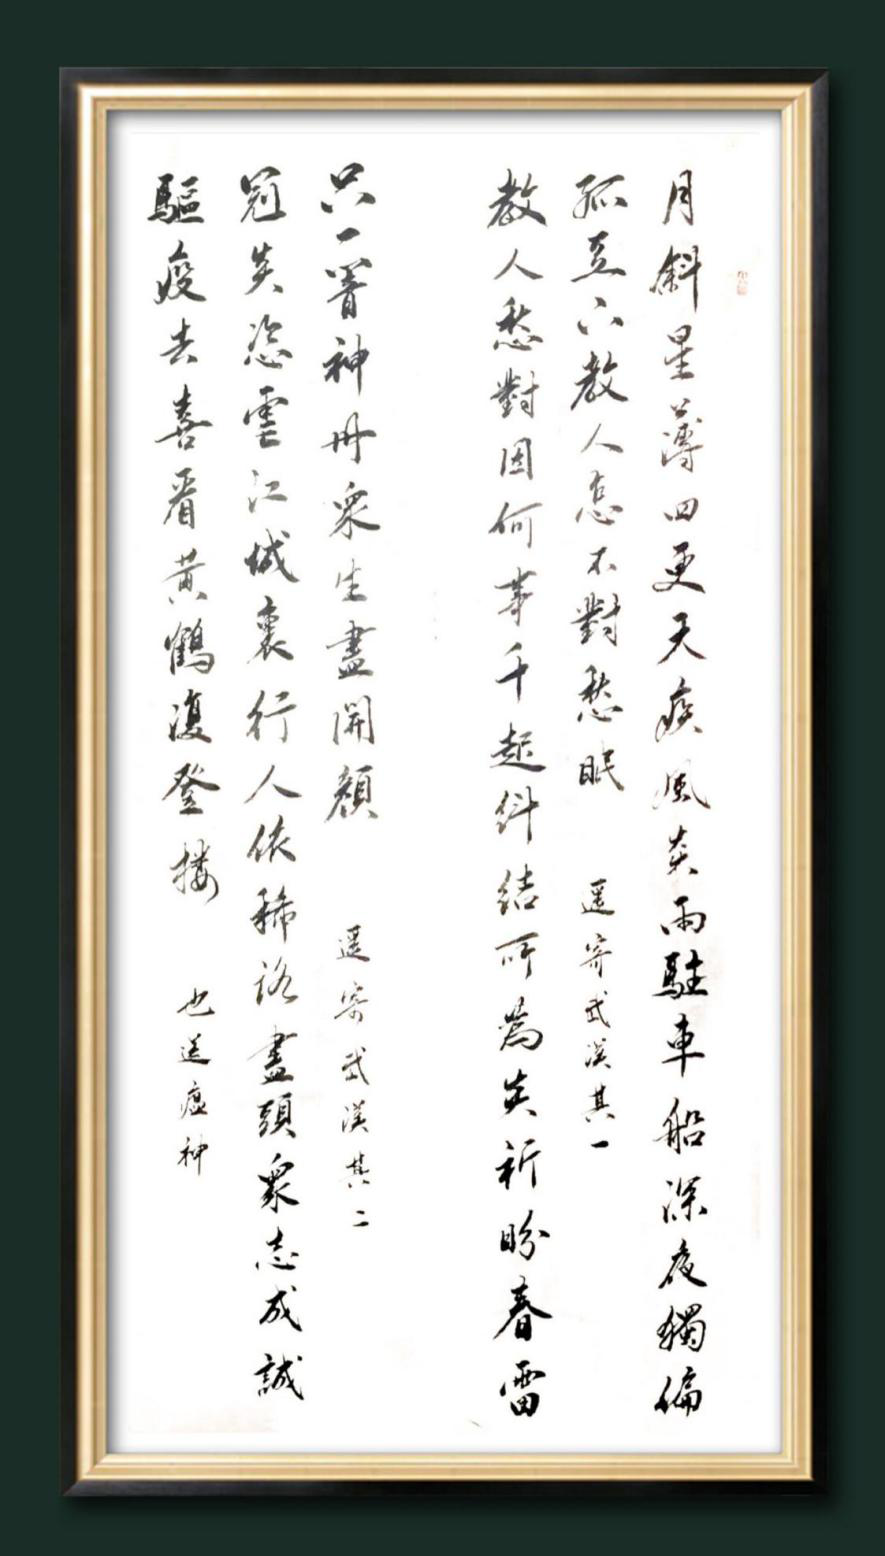 月斜星薄四更天疾風炎雨駐車船深夜獨偏
孤立只教人怎不對愁眠
遥寄武漢其一
教人愁對因何事千起糾結所為炎祈盼春雷
只一響神州眾生盡開顏
遥寄武漢其二
冠炎恣雪江城裏行人依稀路盡頭眾志成誠
驅疫去喜看黃鶴復登樓
也送瘟神